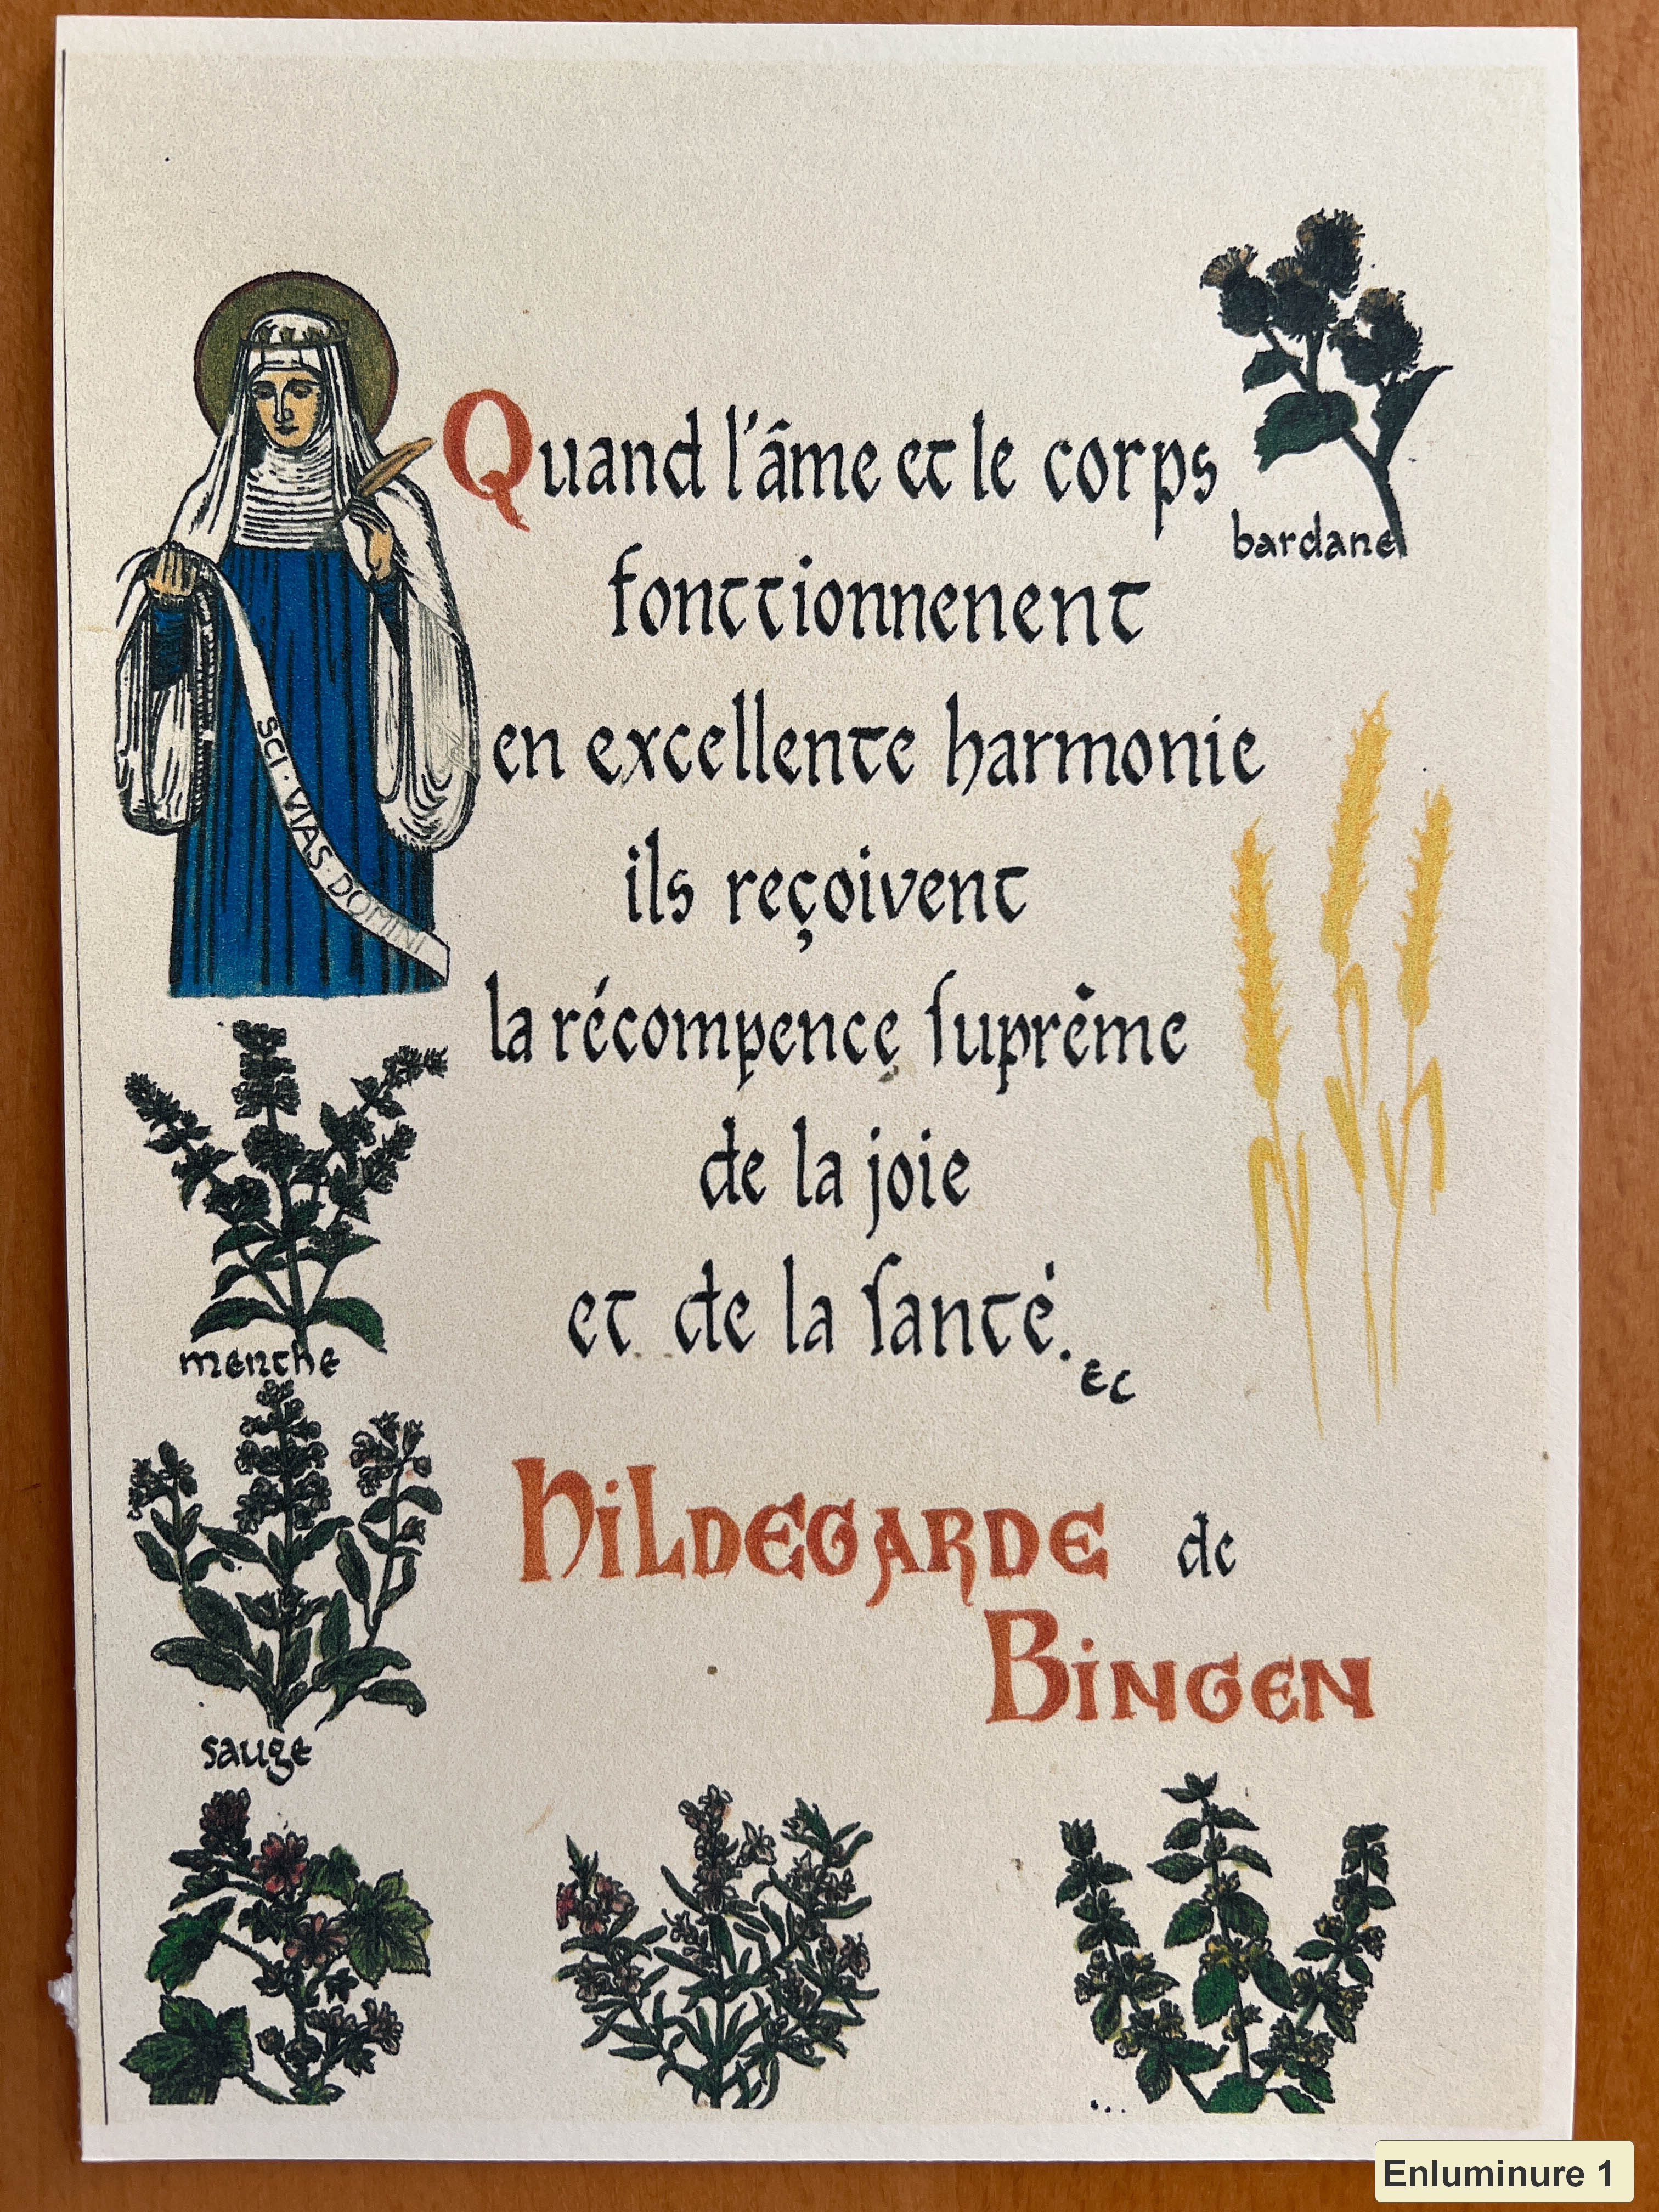 Quand l'âme et le corps
bardane
fonctionnenent
en excellente harmonie
ils reçoivent
SCI · VIAS · DOMINI
la récompence suprême
de la joie
et de la santé.
EC
menthe
HILDEGARDE de
BINGEN
sauge
...
Enluminure 1